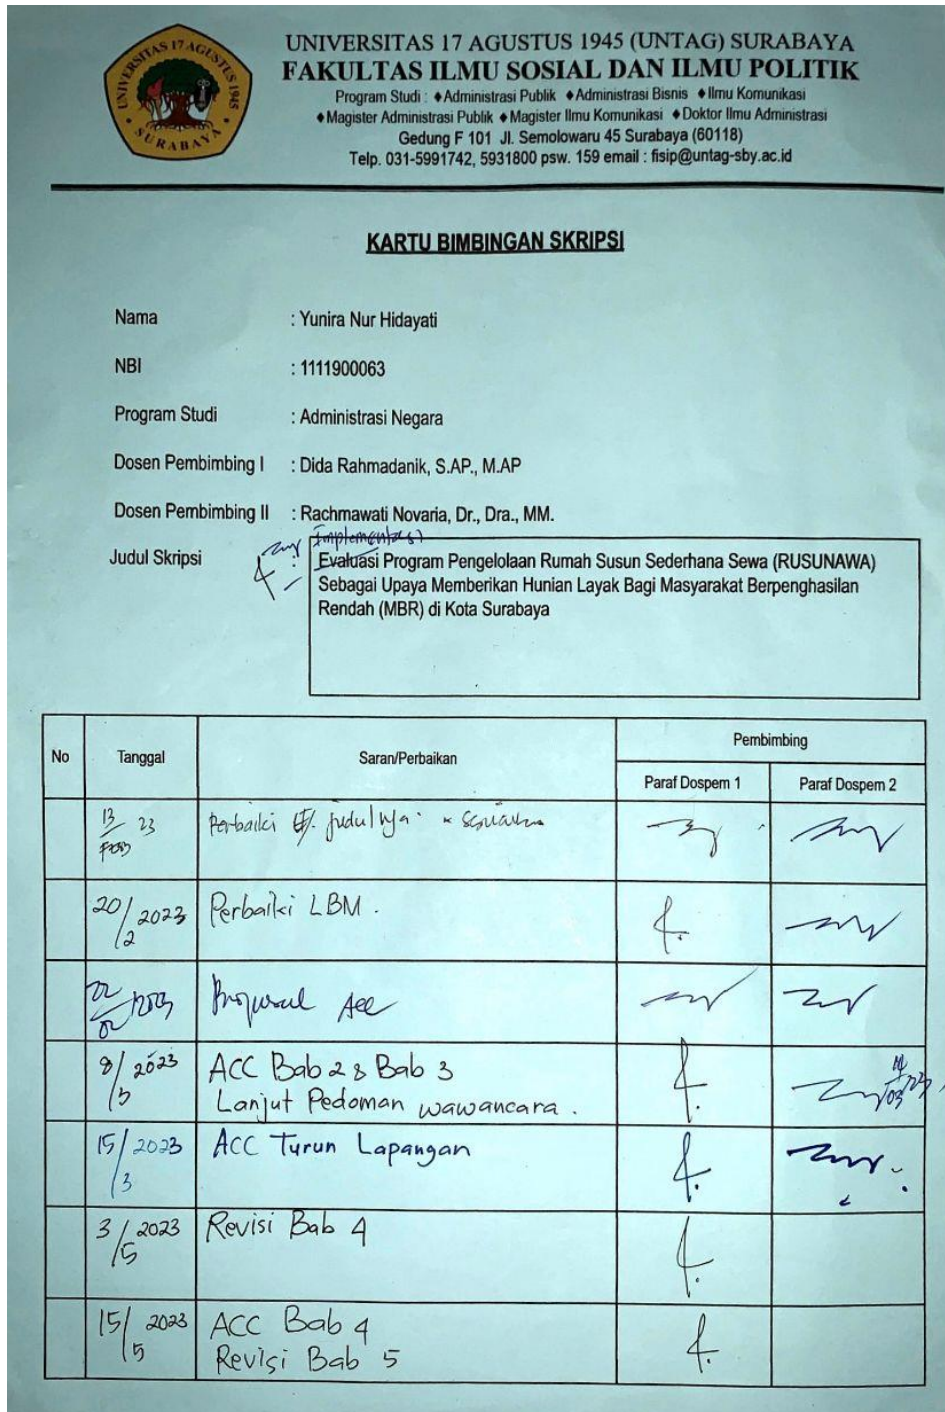 UNIVERSITAS 17 AGUSTUS 1945
SURABAYA
UNIVERSITAS 17 AGUSTUS 1945 (UNTAG) SURABAYA
FAKULTAS ILMU SOSIAL DAN ILMU POLITIK
Program Studi : ♦Administrasi Publik ♦Administrasi Bisnis ♦Ilmu Komunikasi
♦Magister Administrasi Publik ♦Magister Ilmu Komunikasi ♦Doktor Ilmu Administrasi
Gedung F 101 Jl. Semolowaru 45 Surabaya (60118)
Telp. 031-5991742, 5931800 psw. 159 email : fisip@untag-sby.ac.id
KARTU BIMBINGAN SKRIPSI
Nama : Yunira Nur Hidayati
NBI : 1111900063
Program Studi : Administrasi Negara
Dosen Pembimbing I : Dida Rahmadanik, S.AP., M.AP
Dosen Pembimbing II : Rachmawati Novaria, Dr., Dra., MM.
Implementasi
Judul Skripsi : Evaluasi Program Pengelolaan Rumah Susun Sederhana Sewa (RUSUNAWA)
Sebagai Upaya Memberikan Hunian Layak Bagi Masyarakat Berpenghasilan
Rendah (MBR) di Kota Surabaya
No Tanggal Saran/Perbaikan Pembimbing
Paraf Dospem 1 Paraf Dospem 2
13/ 23 Perbaiki judulnya
20/2 2023 Perbaiki LBM.
Proposal Acc
8/3 2023 ACC Bab 2 & Bab 3
Lanjut Pedoman wawancara.
14/03/23
15/3 2023 ACC Turun Lapangan
3/5 2023 Revisi Bab 4
15/5 2023 ACC Bab 4
Revisi Bab 5